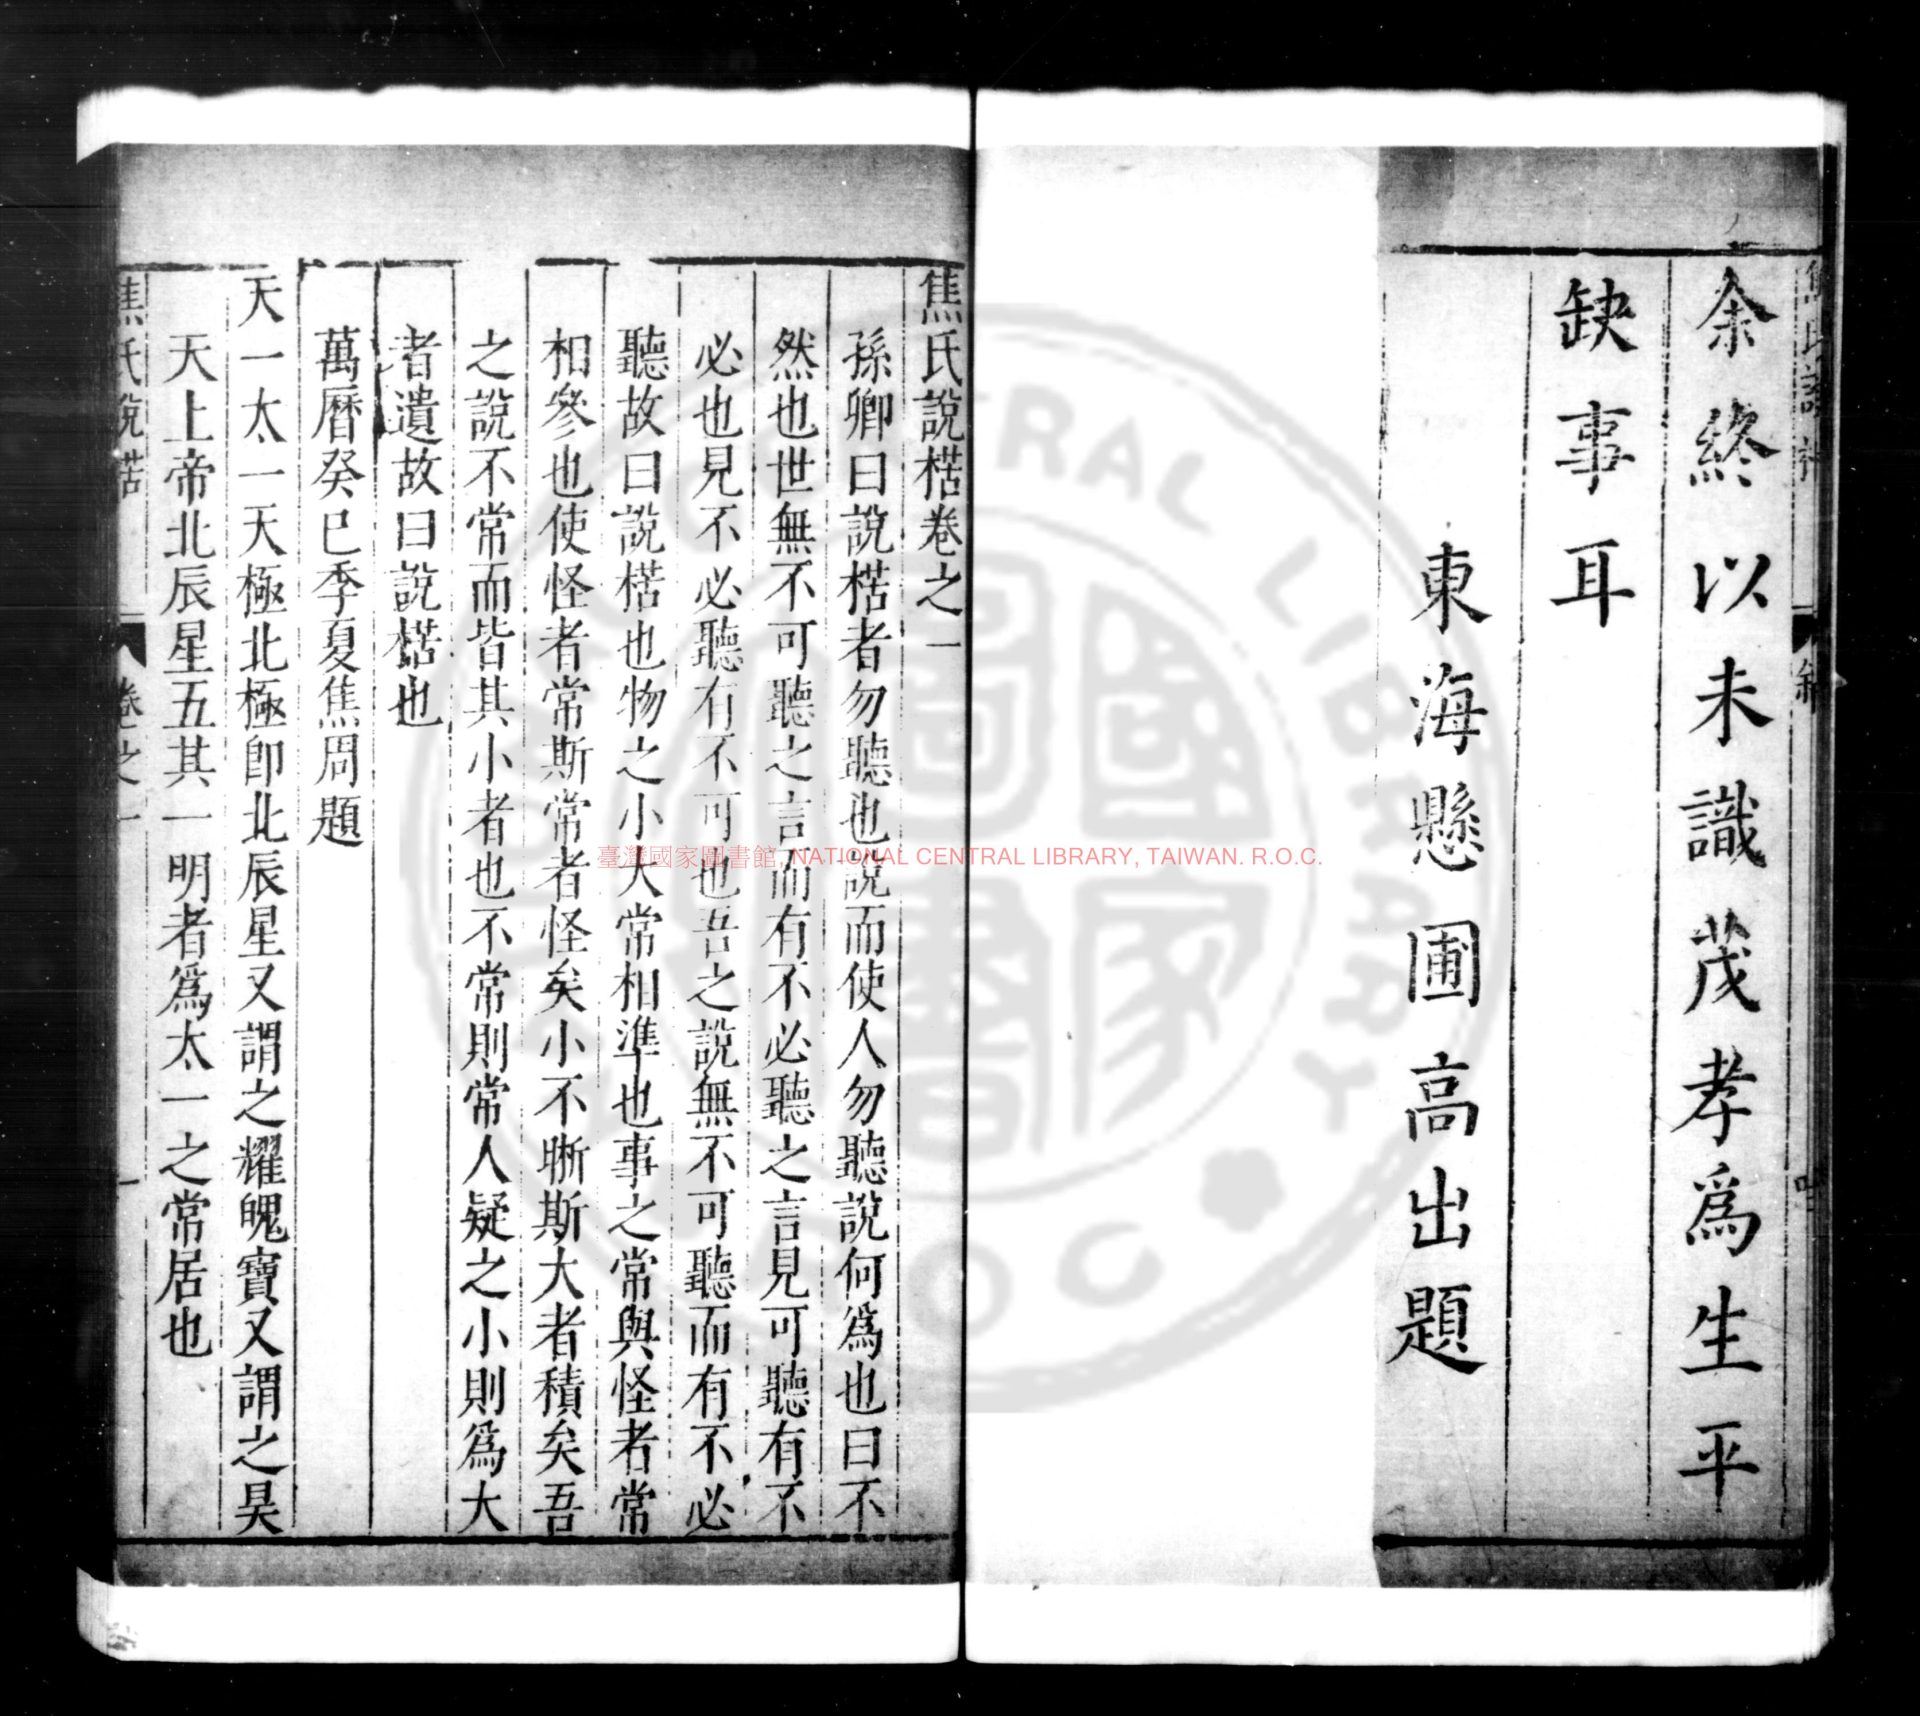 余終以未識茂孝爲生平
缺事耳
東海懸圃高出題
焦氏說楛卷之一
孫卿曰說楛者勿聽也說而使人勿聽說何爲也曰不
然也世無不可聽之言而有不必聽之言見可聽有不
必也見不必聽有不可也吾之說無不可聽而有不必
聽故曰說楛也物之小大常相準也事之常與怪者常
相參也使怪者常斯常者怪矣小不晣斯大者積矣吾
之說不常而皆其小者也不常則常人疑之小則爲大
者遺故曰說楛也
萬曆癸巳季夏焦周題
天一太一天極北極卽北辰星又謂之耀魄寶又謂之昊
天上帝北辰星五其一明者爲太一之常居也
焦氏說楛 卷之一 一
臺灣國家圖書館, NATIONAL CENTRAL LIBRARY, TAIWAN. R.O.C.